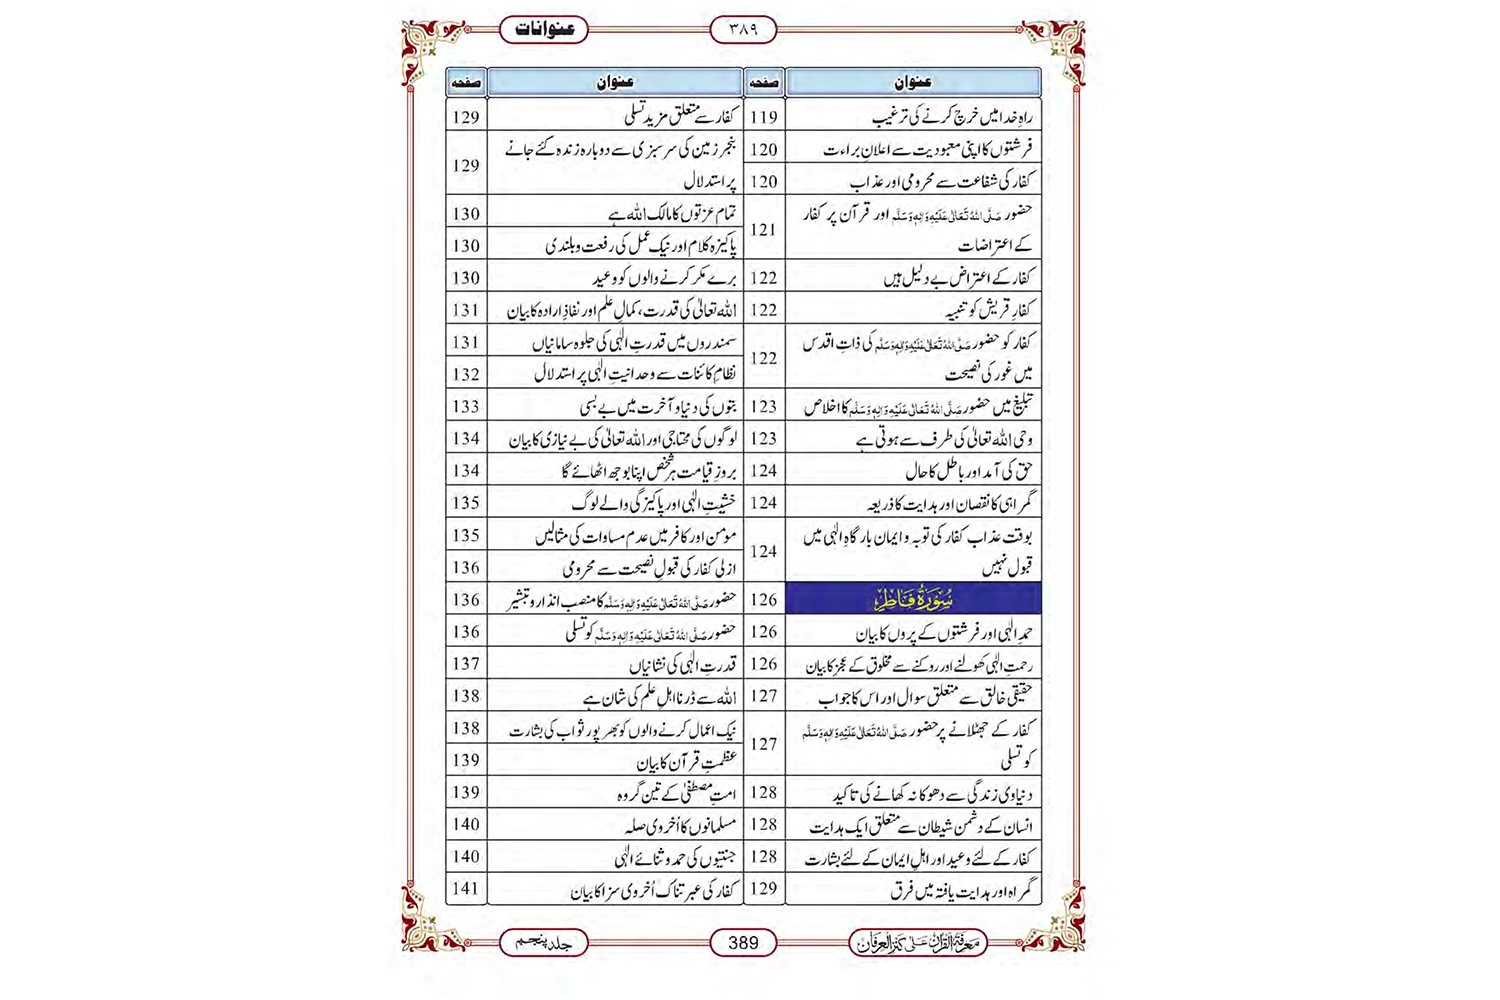 عنوانات
۳۸۹
عنوان صفحہ
راہِ خدا میں خرچ کرنے کی ترغیب 119
فرشتوں کا اپنی معبودیت سے اعلانِ براءت 120
کفار کی شفاعت سے محرومی اور عذاب 120
حضور صَلَّی اللہُ تَعَالٰی عَلَیْہِ وَاٰلِہٖ وَسَلَّم اور قرآن پر کفار
کے اعتراضات 121
کفار کے اعتراض بے دلیل ہیں 122
کفارِ قریش کو تنبیہ 122
کفار کو حضور صَلَّی اللہُ تَعَالٰی عَلَیْہِ وَاٰلِہٖ وَسَلَّم کی ذاتِ اقدس
میں غور کی نصیحت 122
تبلیغ میں حضور صَلَّی اللہُ تَعَالٰی عَلَیْہِ وَاٰلِہٖ وَسَلَّم کا اخلاص 123
وحی اللہ تعالیٰ کی طرف سے ہوتی ہے 123
حق کی آمد اور باطل کا حال 124
گمراہی کا نقصان اور ہدایت کا ذریعہ 124
بوقت عذاب کفار کی توبہ و ایمان بارگاہِ الٰہی میں
قبول نہیں 124
سُوْرَۃُ فَاطِر 126
حمدِ الٰہی اور فرشتوں کے پروں کا بیان 126
رحمتِ الٰہی کھولنے اور روکنے سے مخلوق کے عجز کا بیان 126
حقیقی خالق سے متعلق سوال اور اس کا جواب 127
کفار کے جھٹلانے پر حضور صَلَّی اللہُ تَعَالٰی عَلَیْہِ وَاٰلِہٖ وَسَلَّم
کو تسلی 127
دنیاوی زندگی سے دھوکا نہ کھانے کی تاکید 128
انسان کے دشمن شیطان سے متعلق ایک ہدایت 128
کفار کے لئے وعید اور اہلِ ایمان کے لئے بشارت 128
گمراہ اور ہدایت یافتہ میں فرق 129
عنوان صفحہ
کفار سے متعلق مزید تسلی 129
بنجر زمین کی سرسبزی سے دوبارہ زندہ کئے جانے
پر استدلال 129
تمام عزتوں کا مالک اللہ ہے 130
پاکیزہ کلام اور نیک عمل کی رفعت و بلندی 130
برے مکر کرنے والوں کو وعید 130
اللہ تعالیٰ کی قدرت، کمالِ علم اور نفاذِ ارادہ کا بیان 131
سمندروں میں قدرتِ الٰہی کی جلوہ سامانیاں 131
نظامِ کائنات سے وحدانیتِ الٰہی پر استدلال 132
بتوں کی دنیا و آخرت میں بے بسی 133
لوگوں کی محتاجی اور اللہ تعالیٰ کی بے نیازی کا بیان 134
بروزِ قیامت ہر شخص اپنا بوجھ اٹھائے گا 134
خشیتِ الٰہی اور پاکیزگی والے لوگ 135
مومن اور کافر میں عدم مساوات کی مثالیں 135
ازلی کفار کی قبولِ نصیحت سے محرومی 136
حضور صَلَّی اللہُ تَعَالٰی عَلَیْہِ وَاٰلِہٖ وَسَلَّم کا منصب انذار و تبشیر 136
حضور صَلَّی اللہُ تَعَالٰی عَلَیْہِ وَاٰلِہٖ وَسَلَّم کو تسلی 136
قدرتِ الٰہی کی نشانیاں 137
اللہ سے ڈرنا اہلِ علم کی شان ہے 138
نیک اعمال کرنے والوں کو بھرپور ثواب کی بشارت 138
عظمتِ قرآن کا بیان 139
امتِ مصطفیٰ کے تین گروہ 139
مسلمانوں کا اُخروی صلہ 140
جنتیوں کی حمد و ثنائے الٰہی 140
کفار کی عبرتناک اُخروی سزا کا بیان 141
معرفۃ القرآن علیٰ کنز العرفان
389
جلد پنجم